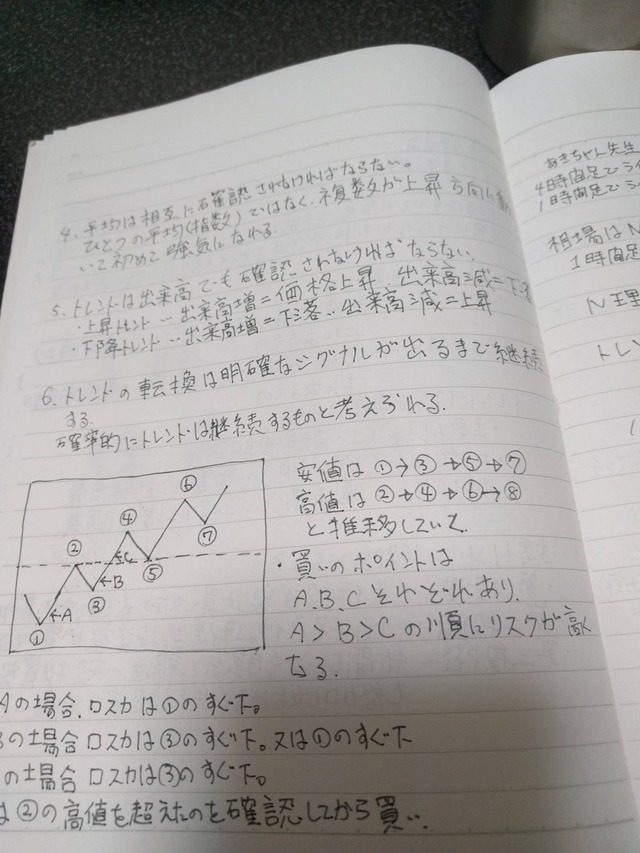 4. 平均は相互に確認されなければならない。
ひとつの平均(指数)ではなく、複数が上昇方向に
いて初めて強気になれる。
5. トレンドは出来高でも確認されなければならない。
・上昇トレンド‥出来高増=価格上昇 出来高減=下落
・下降トレンド‥出来高増=下落‥出来高減=上昇
6. トレンドの転換は明確なシグナルが出るまで継続
する。
確率的にトレンドは継続するものと考えられる。
⑥
④
②
←C
⑦
←B
⑤
③
←A
①
安値は①→③→⑤→⑦
高値は②→④→⑥→⑧
と推移していく
・買いのポイントは
A.B.C それぞれあり.
A>B>Cの順にリスクが高く
なる.
Aの場合、ロスカは①のすぐ下。
Bの場合ロスカは③のすぐ下。又は①のすぐ下
の場合ロスカは(3)のすぐ下。
は②の高値を超えたのを確認してから買い.
あきちゃん先生
4時間足でラ
1時間足でラ
相場はN
1時間足
N理
トレン